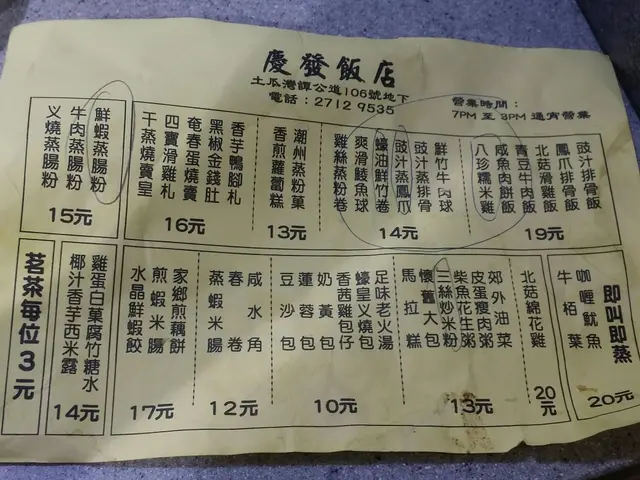 慶發飯店
土瓜灣譚公道106號地下
電話：2712 9535
營業時間：
7PM 至 3PM 通宵營業
豉汁排骨飯
鳳爪排骨飯
北菇滑雞飯
青豆牛肉飯
咸魚肉餅飯
八珍糯米雞
19元
鮮竹牛肉球
豉汁蒸排骨
豉汁蒸鳳爪
蠔油鮮竹卷
爽滑鯪魚球
雞絲蒸粉卷
14元
潮州蒸粉菓
香煎蘿蔔糕
13元
香芋鴨腳札
黑椒金錢肚
奄春蛋燒賣
四寶滑雞札
干蒸燒賣皇
16元
鮮蝦蒸腸粉
牛肉蒸腸粉
义燒蒸腸粉
15元
即叫即蒸
咖喱魷魚
牛栢葉
20元
北菇綿花雞
20元
郊外油菜
皮蛋瘦肉粥
柴魚花生粥
三絲炒米粉
懷舊大包
馬拉糕
13元
足味老火湯
蠔皇义燒包
香茜雞包仔
奶黃包
蓮蓉包
豆沙包
10元
咸水角
春卷
蒸蝦米腸
12元
家鄉煎藕餅
煎蝦米腸
水晶鮮蝦餃
17元
雞蛋白菓腐竹糖水
椰汁香芋西米露
14元
茗茶每位3元